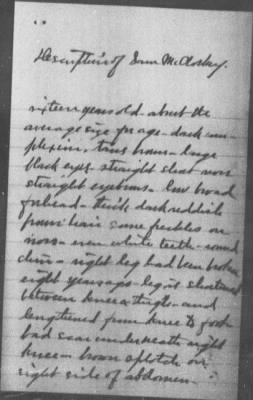 Description of Sam McCloskey.
sixteen years old - about the
average size for age - dark com-
plexion - large
black eyes - straight short nose
straight eyebrows - low broad
forhead - thick dark reddish
brown hair some freckles on
nose - even white teeth - round
chin - right leg had been broken
eight years ago - leg is shortened
between knee & thigh - and
lengthened from knee to foot
bad scar underneath right
knee - brown splotch on
right side of abdomen -